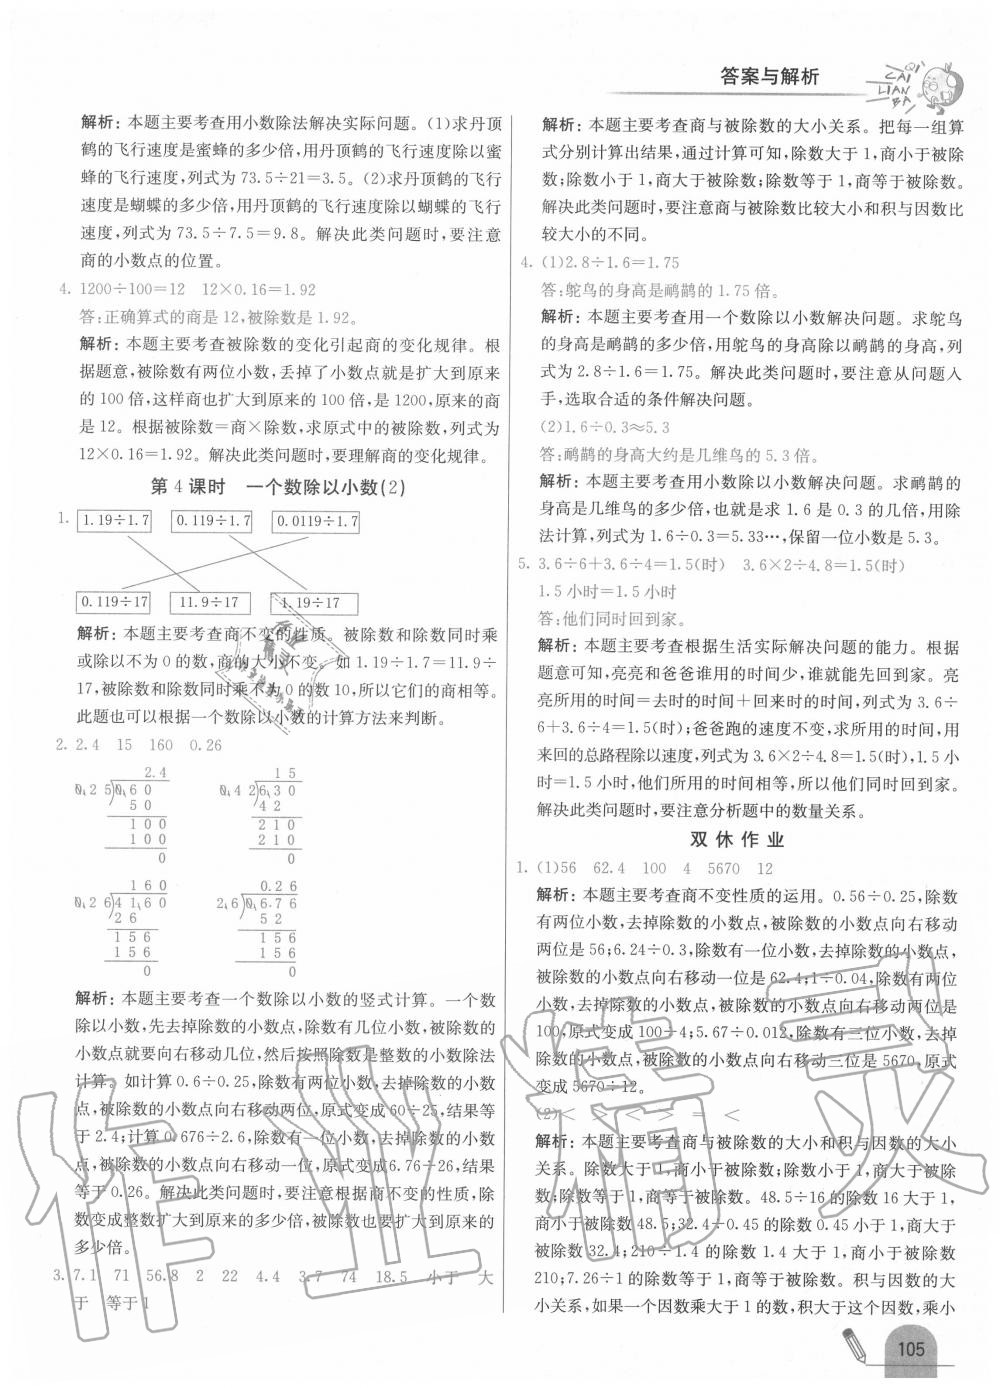 答案与解析
CAI
QI
LIAN
BA
解析:本题主要考查用小数除法解决实际问题。(1)求丹顶
鹤的飞行速度是蜜蜂的多少倍,用丹顶鹤的飞行速度除以蜜
蜂的飞行速度,列式为 73.5÷21=3.5。(2)求丹顶鹤的飞行
速度是蝴蝶的多少倍,用丹顶鹤的飞行速度除以蝴蝶的飞行
速度,列式为 73.5÷7.5=9.8。解决此类问题时,要注意
商的小数点的位置。
4. 1200÷100=12 12×0.16=1.92
答:正确算式的商是 12,被除数是 1.92。
解析:本题主要考查被除数的变化引起商的变化规律。根
据题意,被除数有两位小数,丢掉了小数点就是扩大到原来
的 100 倍,这样商也扩大到原来的 100 倍,是 1200,原来的商
是 12。根据被除数=商×除数,求原式中的被除数,列式为
12×0.16=1.92。解决此类问题时,要理解商的变化规律。
第 4 课时 一个数除以小数(2)
1. 1.19÷1.7 0.119÷1.7 0.0119÷1.7
0.119÷17 11.9÷17 1.19÷17
解析:本题主要考查商不变的性质。被除数和除数同时乘
或除以不为 0 的数,商的大小不变。如 1.19÷1.7=11.9÷
17,被除数和除数同时乘不为 0 的数 10,所以它们的商相等。
此题也可以根据一个数除以小数的计算方法来判断。
2. 2.4 15 160 0.26
2.4 15
0.25 0.60 0.42 6.30
50 42
100 210
100 210
0 0
160 0.26
0.26 41.60 2.6 0.6.76
26 52
156 156
156 156
0 0
解析:本题主要考查一个数除以小数的竖式计算。一个数
除以小数,先去掉除数的小数点,除数有几位小数,被除数的
小数点就要向右移动几位,然后按照除数是整数的小数除法
计算。如计算 0.6÷0.25,除数有两位小数,去掉除数的小数
点,被除数的小数点向右移动两位,原式变成 60÷25,结果等
于 2.4;计算 0.676÷2.6,除数有一位小数,去掉除数的小数
点,被除数的小数点向右移动一位,原式变成 6.76÷26,结果
等于 0.26。解决此类问题时,要注意根据商不变的性质,除
数变成整数扩大到原来的多少倍,被除数也要扩大到原来的
多少倍。
3. 7.1 71 56.8 2 22 4.4 3.7 74 18.5 小于 大
于 等于 1
解析:本题主要考查商与被除数的大小关系。把每一组算
式分别计算出结果,通过计算可知,除数大于 1,商小于被除
数;除数小于 1,商大于被除数;除数等于 1,商等于被除数。
解决此类问题时,要注意商与被除数比较大小和积与因数比
较大小的不同。
4. (1)2.8÷1.6=1.75
答:鸵鸟的身高是鸸鹋的 1.75 倍。
解析:本题主要考查用一个数除以小数解决问题。求鸵鸟
的身高是鸸鹋的多少倍,用鸵鸟的身高除以鸸鹋的身高,列
式为 2.8÷1.6=1.75。解决此类问题时,要注意从问题入
手,选取合适的条件解决问题。
(2)1.6÷0.3≈5.3
答:鸸鹋的身高大约是几维鸟的 5.3 倍。
解析:本题主要考查用小数除以小数解决问题。求鸸鹋的
身高是几维鸟的多少倍,也就是求 1.6 是 0.3 的几倍,用除
法计算,列式为 1.6÷0.3=5.33…,保留一位小数是 5.3。
5. 3.6÷6+3.6÷4=1.5(时) 3.6×2÷4.8=1.5(时)
1.5 小时=1.5 小时
答:他们同时回到家。
解析:本题主要考查根据生活实际解决问题的能力。根据
题意可知,亮亮和爸爸谁用的时间少,谁就先回到家。亮
亮所用的时间=去时的时间+回来时的时间,列式为 3.6÷
6+3.6÷4=1.5(时);爸爸跑的速度不变,求所用的时间,用
来回的总路程除以速度,列式为 3.6×2÷4.8=1.5(时),1.5 小
时=1.5 小时,他们所用的时间相等,所以他们同时回到家。
解决此类问题时,要注意分析题中的数量关系。
双休作业
1. (1)56 62.4 100 4 5670 12
解析:本题主要考查商不变性质的运用。0.56÷0.25,除数
有两位小数,去掉除数的小数点,被除数的小数点向右移动
两位是 56;6.24÷0.3,除数有一位小数,去掉除数的小数点,
被除数的小数点向右移动一位是 62.4;1÷0.04,除数有两位
小数,去掉除数的小数点,被除数的小数点向右移动两位是
100,原式变成 100÷4;5.67÷0.012,除数有三位小数,去掉
除数的小数点,被除数的小数点向右移动三位是 5670,原式
变成 5670÷12。
(2)< < < > = <
解析:本题主要考查商与被除数的大小和积与因数的大小
关系。除数大于 1,商小于被除数;除数小于 1,商大于被除
数;除数等于 1,商等于被除数。48.5÷16 的除数 16 大于 1,
商小于被除数 48.5;32.4÷0.45 的除数 0.45 小于 1,商大于
被除数 32.4;210÷1.4 的除数 1.4 大于 1,商小于被除数
210;7.26÷1 的除数等于 1,商等于被除数。积与因数的大
小关系,如果一个因数乘大于 1 的数,积大于这个因数,乘小
105
作业精灵